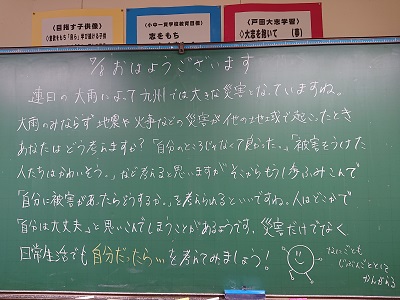 《目指す子供像》
《小中一貫学校教育目標》
志をもち
《戸田大志学習》
◇大志を抱いて （事）
7/8 おはようございます
連日の大雨によって九州では大きな災害となっていますね。
大雨のみならず地震や火事などの災害が他の地域で起こったとき
あなたはどう考えますか？「自分のところじゃなくて良かった。」「被害をうけた
人たちはかわいそう。」など考えると思いますがそこからもう1歩ふみこんで
「自分に被害があったらどうするか。」を考えられるといいですね。人はどこかで
「自分は大丈夫。」と思いこんでしまうことがあるようです。災害だけでなく
日常生活でも自分だったら…を考えてみましょう！
なにごとも
じぶんごととして
かんがえる